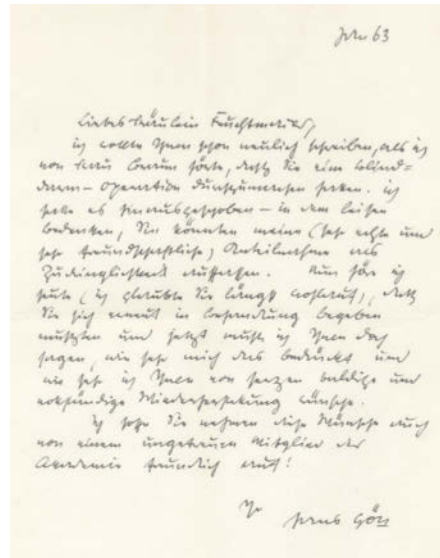 Jan 63
Liebes Fräulein Feuchtmüller,
ich wollte Ihnen schon neulich schreiben, als ich
von Frau hörte, dass Sie eine Blind=
darm-Operation durchzumachen hatten. ich
habe es hinausgeschoben – in dem leisen
bedenken, Sie könnten meine (sehr echte und
sehr freundschaftliche) Anteilnahme als
Zudringlichkeit auffassen. Nun höre ich
heute (ich glaubte Sie längst wohlauf), dass
Sie sich erneut in behandlung begeben
mussten und jetzt muss ich Ihnen doch
sagen, wie sehr mich das bedrückt und
wie sehr ich Ihnen von Herzen baldige und
vollständige Wiederherstellung wünsche.
Ich hoffe Sie nehmen diese Wünsche auch
von einem ungetreuen Mitglied der
Akademie freundlich auf!
Ihr